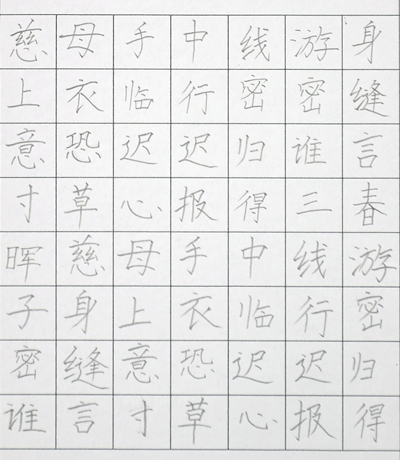 慈母手中线游身
上衣临行密密缝
意恐迟迟归谁言
寸草心报得三春
晖慈母手中线游
子身上衣临行密
密缝意恐迟迟归
谁言寸草心报得